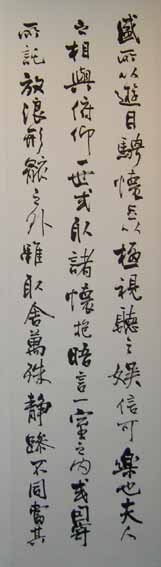 盛所以遊目騁懷足以極視聽之娛信可樂也夫人
之相與俯仰一世或取諸懷抱晤言一室之內或因寄
所託放浪形骸之外雖取舍萬殊靜躁不同當其